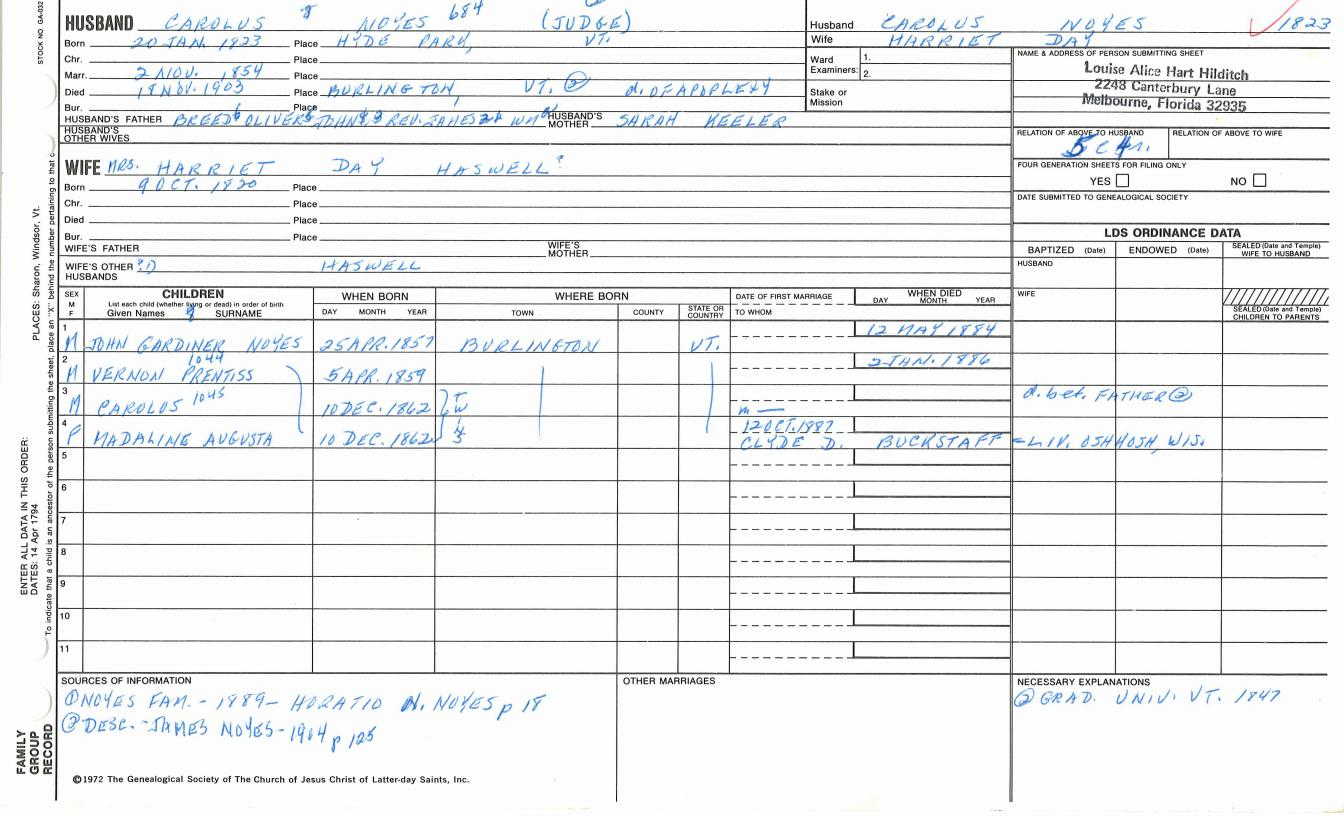 STOCK NO. GA-032
HUSBAND CAROLUS 8 NOYES 684 (JUDGE)
Born 20 JAN. 1823 Place HYDE PARK, VT.
Chr. Place
Marr. 2 NOV. 1854 Place
Died 18 NOV. 1903 Place BURLINGTON, VT. ② d. OF APOPLEXY
Bur. Place
HUSBAND'S FATHER BREED6 OLIVER5 JOHN REV. JAMES WM HUSBAND'S MOTHER SARAH KEELER
HUSBAND'S OTHER WIVES
WIFE MRS. HARRIET DAY HASWELL?
Born 9 OCT. 1820 Place
Chr. Place
Died Place
Bur. Place
WIFE'S FATHER WIFE'S MOTHER
WIFE'S OTHER HUSBANDS ?1) HASWELL
Husband CAROLUS NOYES 1823
Wife HARRIET DAY
Ward Examiners: 1. 2.
Stake or Mission
NAME & ADDRESS OF PERSON SUBMITTING SHEET
Louise Alice Hart Hilditch
2248 Canterbury Lane
Melbourne, Florida 32935
RELATION OF ABOVE TO HUSBAND RELATION OF ABOVE TO WIFE
FOUR GENERATION SHEETS FOR FILING ONLY
YES NO
DATE SUBMITTED TO GENEALOGICAL SOCIETY
LDS ORDINANCE DATA
BAPTIZED (Date) ENDOWED (Date) SEALED (Date and Temple) WIFE TO HUSBAND
HUSBAND
WIFE
SEALED (Date and Temple) CHILDREN TO PARENTS
SEX M F
CHILDREN
List each child (whether living or dead) in order of birth
Given Names SURNAME
WHEN BORN DAY MONTH YEAR
WHERE BORN TOWN COUNTY STATE OR COUNTRY
DATE OF FIRST MARRIAGE TO WHOM
WHEN DIED DAY MONTH YEAR
1 M JOHN GARDINER NOYES 25 APR. 1857 BURLINGTON VT. 12 MAY 1884
2 M VERNON PRENTISS 1044 5 APR. 1859 2 JAN. 1886
3 M CAROLUS 1045 10 DEC. 1862 TW m — d. bet. FATHER ②
4 F MADALINE AUGUSTA 10 DEC. 1862 12 OCT. 1887 CLYDE D. BUCKSTAFF = LIV. OSHHOSH, WIS.
5
6
7
8
9
10
11
SOURCES OF INFORMATION
① NOYES FAM. - 1889 - HORATIO N. NOYES p 18
② DESC. - JAMES NOYES - 1904 p 125
OTHER MARRIAGES
NECESSARY EXPLANATIONS
② GRAD. UNIV. VT. 1847
©1972 The Genealogical Society of The Church of Jesus Christ of Latter-day Saints, Inc.
FAMILY GROUP RECORD
ENTER ALL DATA IN THIS ORDER:
DATES: 14 Apr 1794
PLACES: Sharon, Windsor, Vt.
To indicate that a child is an ancestor of the person submitting the sheet, place an "X" behind the number pertaining to that c